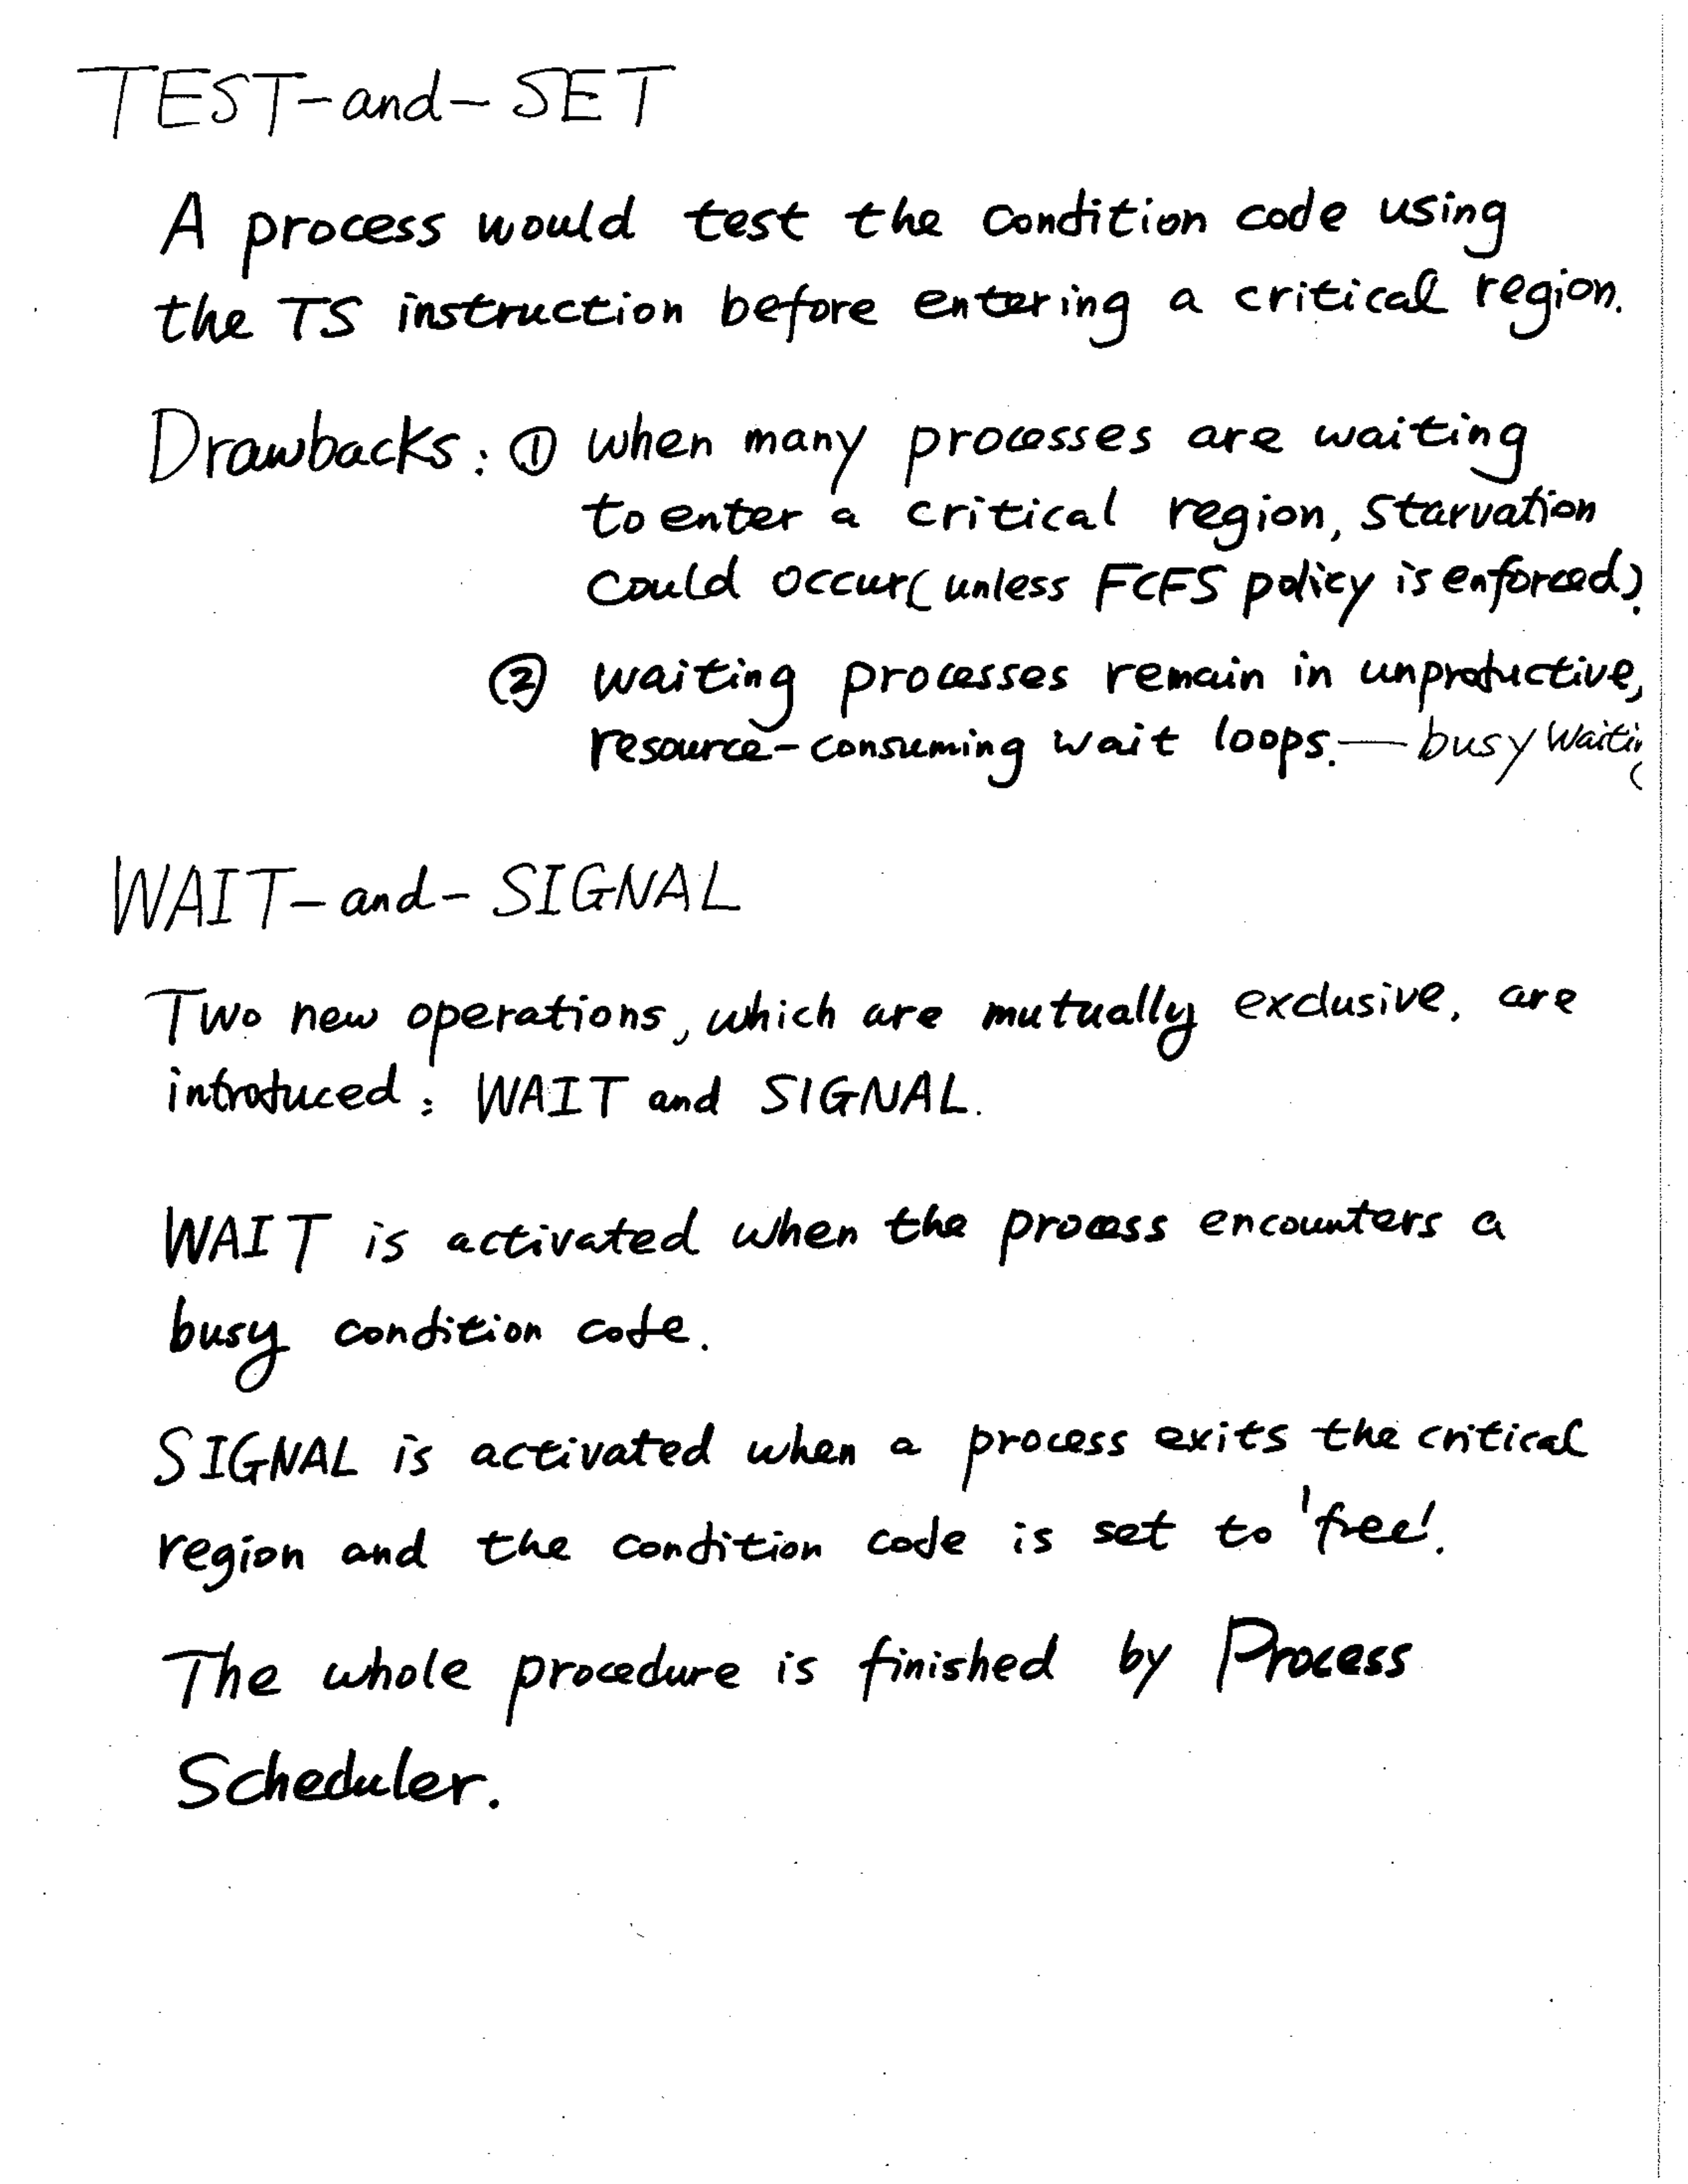 TEST-and-SET
A process would test the condition code using
the TS instruction before entering a critical region.
Drawbacks: ① when many processes are waiting
to enter a critical region, starvation
could occur (unless FCFS policy is enforced).
② waiting processes remain in unproductive,
resource-consuming wait loops. — busy
WAIT-and-SIGNAL
Two new operations, which are mutually exclusive, are
introduced: WAIT and SIGNAL.
WAIT is activated when the process encounters a
busy condition code.
SIGNAL is activated when a process exits the critical
region and the condition code is set to 'free'.
The whole procedure is finished by Process
Scheduler.